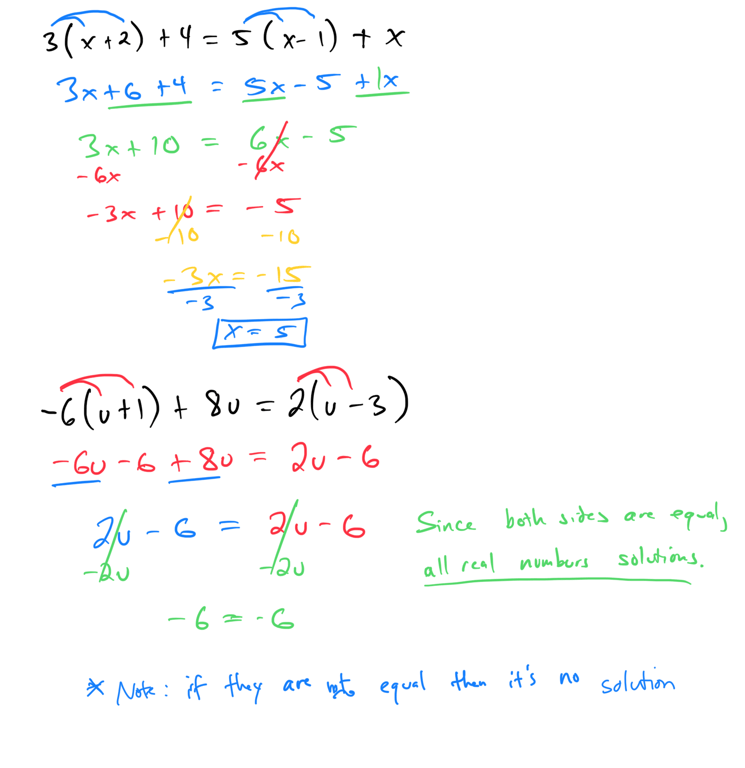 3(x+2) + 4 = 5(x-1) + x
3x+6 +4 = 5x - 5 +1x
3x + 10 = 6x - 5
-6x -6x
-3x + 10 = - 5
-10 -10
-3x = -15
-3 -3
x = 5
-6(u+1) + 8u = 2(u-3)
-6u - 6 + 8u = 2u - 6
2u - 6 = 2u - 6
-2u -2u
Since both sides are equal,
all real numburs solutions.
-6 = -6
* Note: if they are not equal then it's no solution